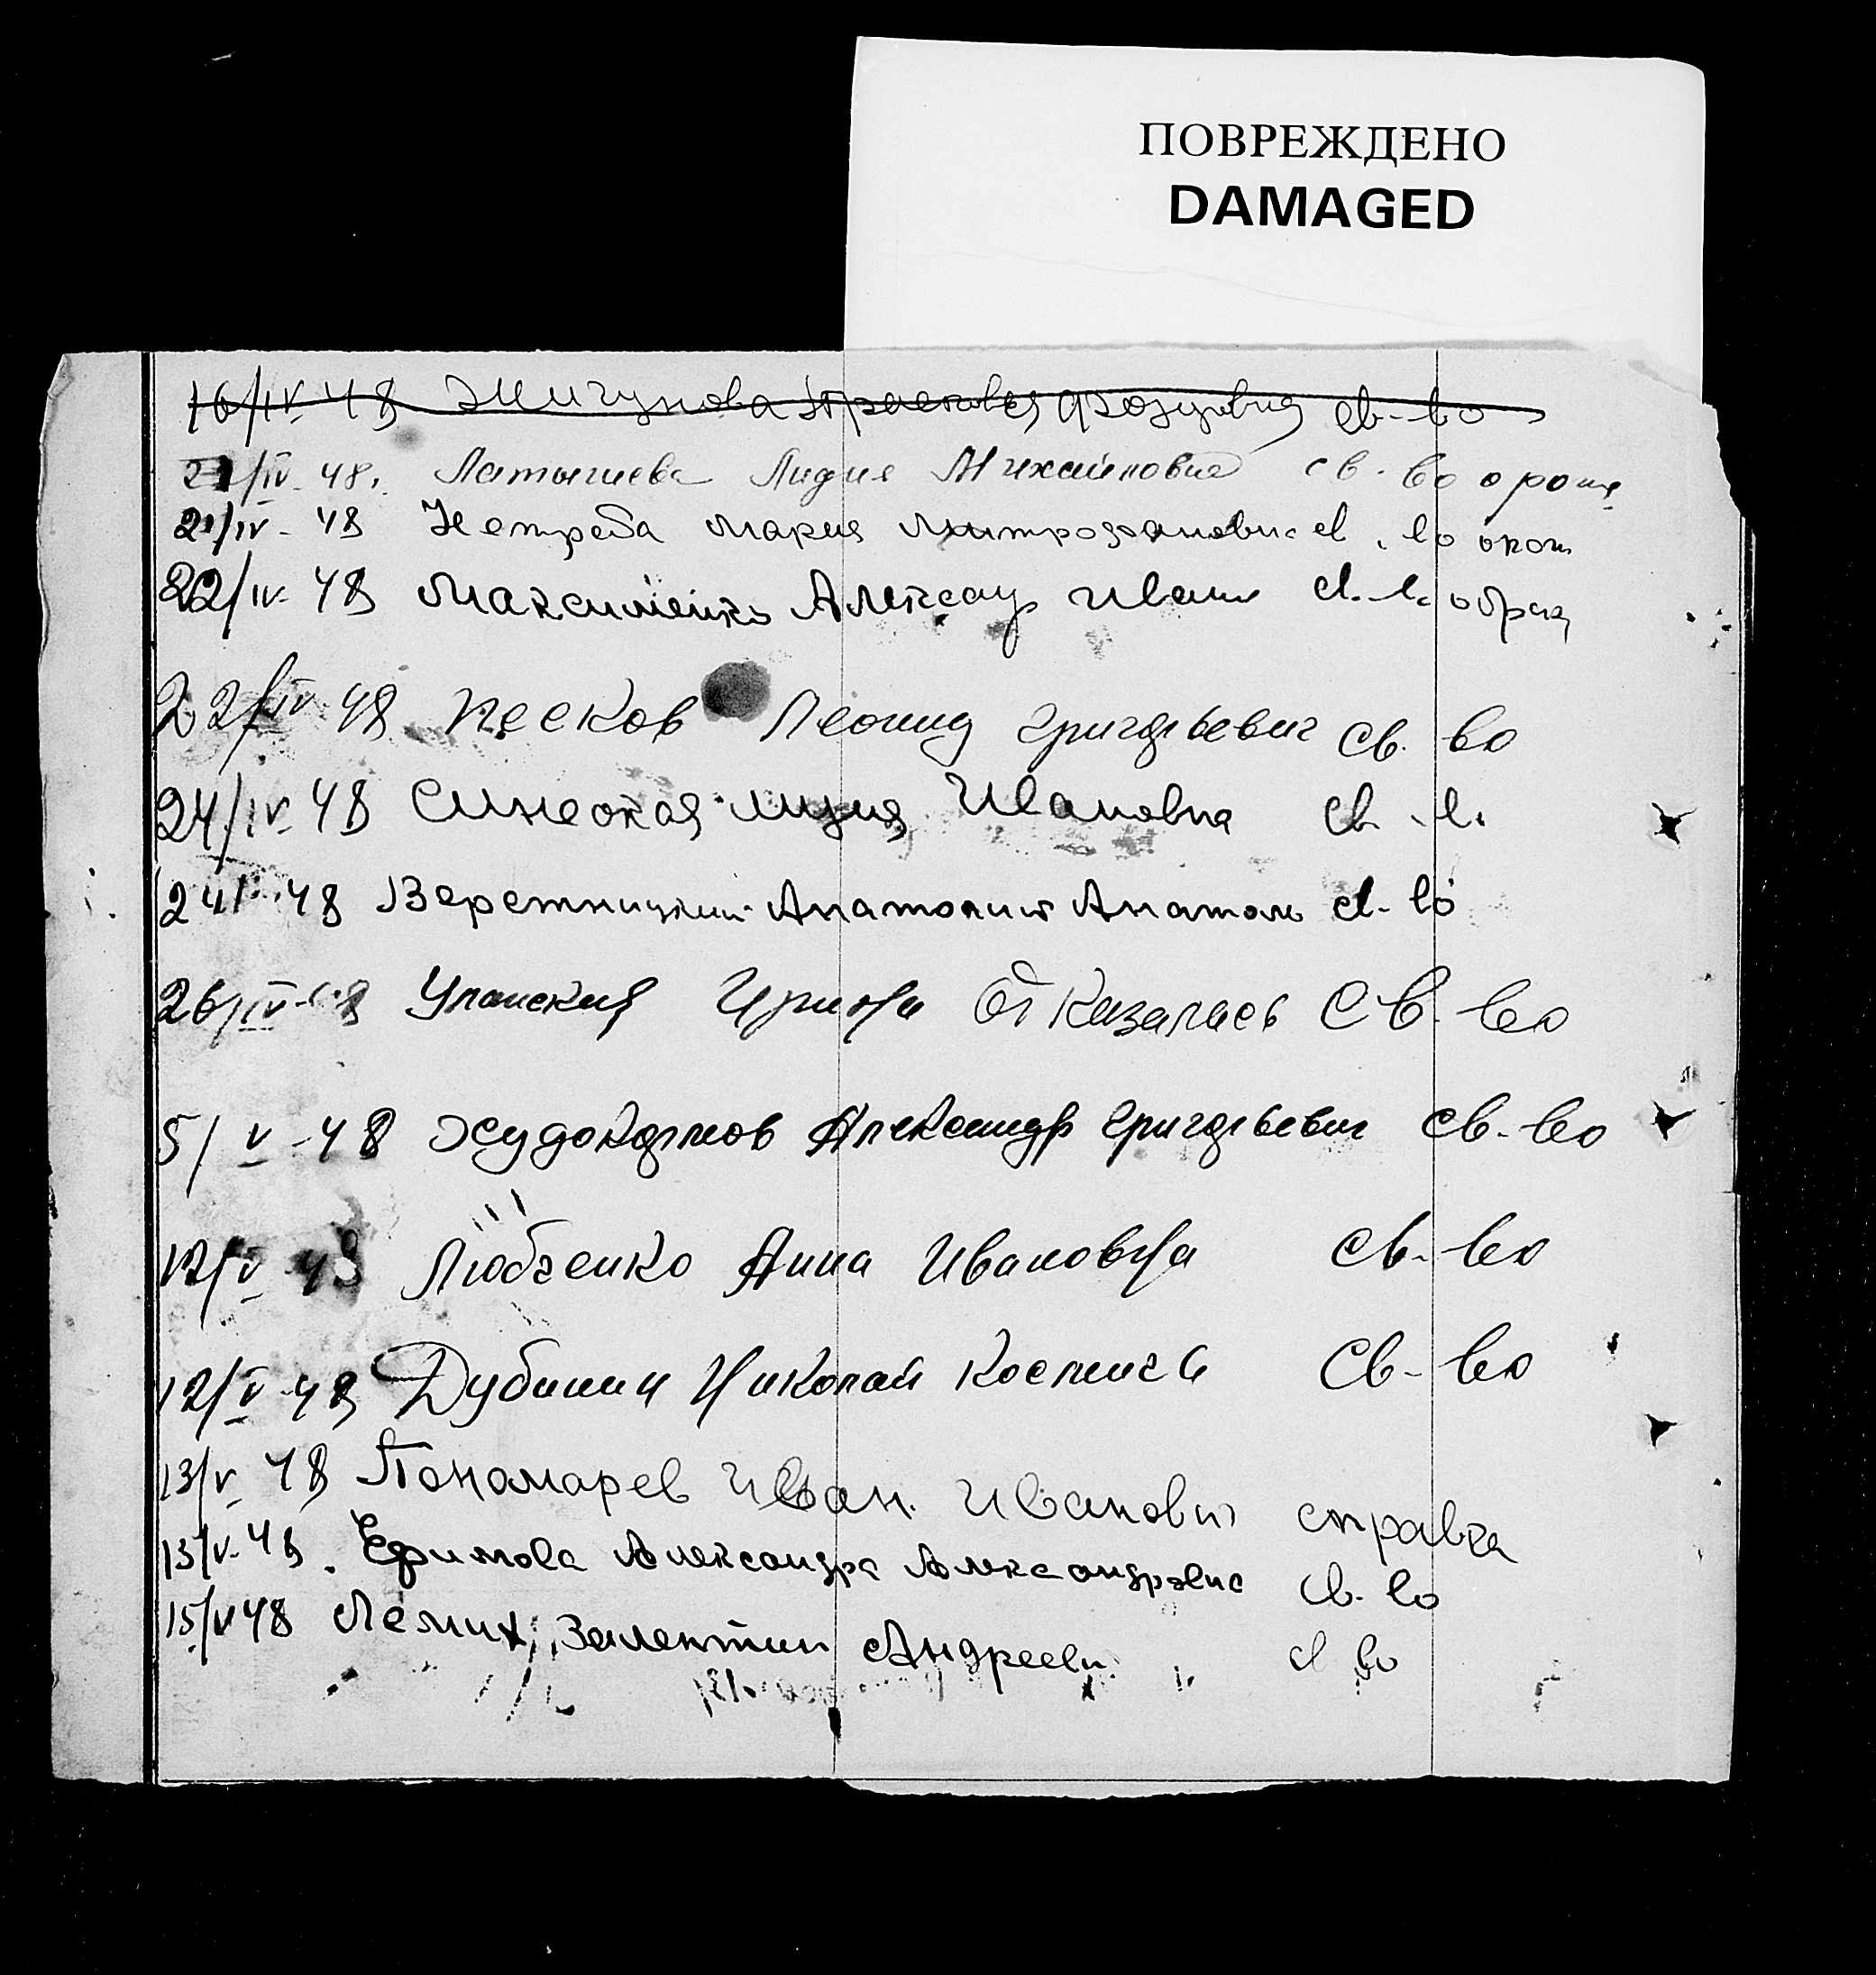 ПОВРЕЖДЕНО
DAMAGED
16/IV 48 Жигунова Прасковья св-во
21/IV-48. Латышева Лидия Михайловна св-во о рожд
21/IV-48 Нетреба Мария Митрофановна св. во
22/IV-48 Максименко Александ Иван св.-в. о брак
22/IV 48 Песков Леонид Григорьевич св. во
24/IV-48 Синеокая Ивановна св.-в.
24/ 48 Анатолий Анатоль св-во
26/IV-48 Ирина отказалась св-во
5/V-48 Худокормов Александр Григорьевич св-во
12/V-48 Любченко Анна Ивановна св-во
12/V-48 Дубинин Николай св-во
13/V 48 Пономарев Иван Иванович справка
13/V-48. Ефимова Александра Александровна св-во
15/V 48 Валентин Андрееви св во